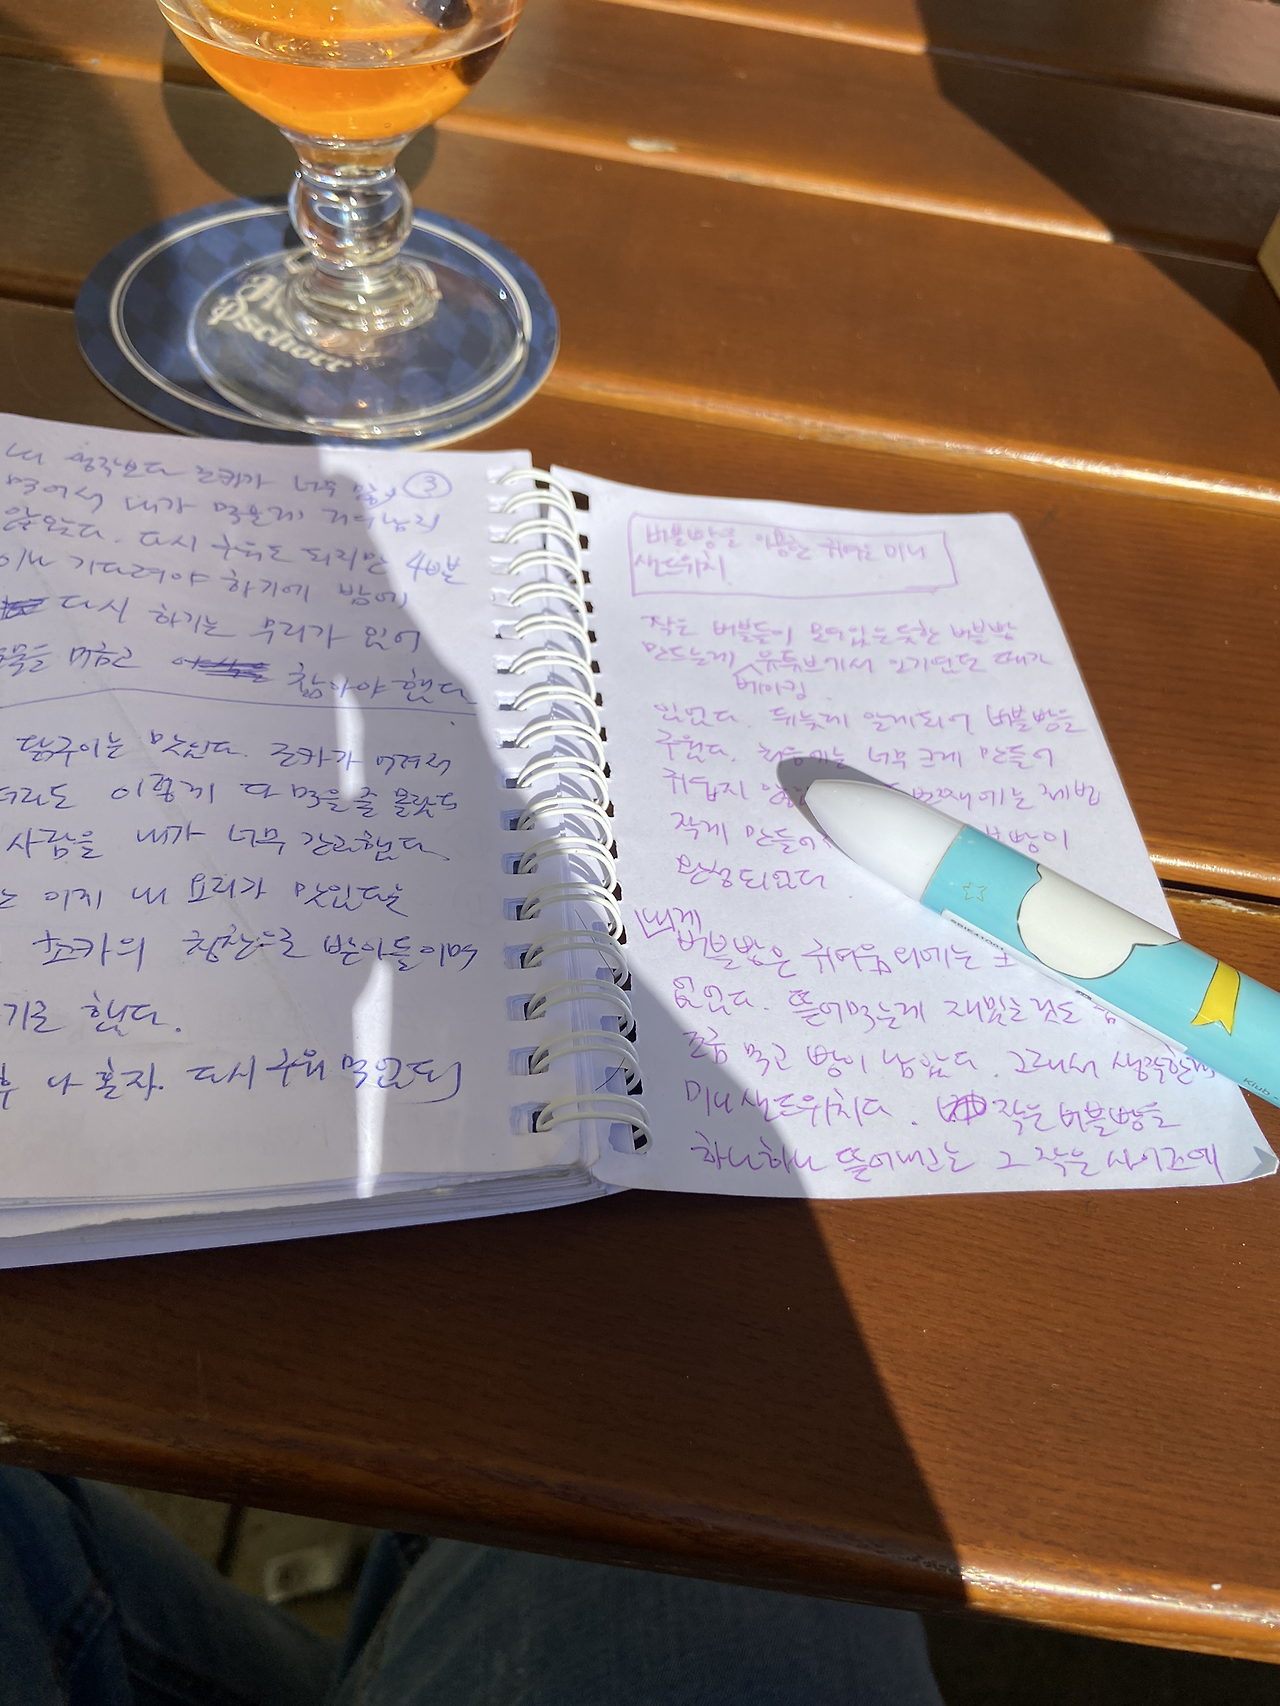 Pschorr
내 생각보다 조카가 너무 많이 ③
먹어서 내가 먹을게 거의 남지
않았다. 다시 구워도 되지만 40분
이나 기다려야 하기에 밤에
다시 하기는 무리가 있어
머금고 참아야 했다
닭구이는 맛있다. 조카가 어려서
이렇게 다 먹을줄 몰랐다
사람을 내가 너무 간과했다
이제 내 요리가 맛있다는
조카의 칭찬으로 받아들이며
기로 했다.
나 혼자. 다시 구워 먹었다
버블빵을 이용한 귀여운 미니
샌드위치
작은 버블들이 모여있는듯한 버블빵
만드는게 유튜브에서 인기였던 때가
베이킹
있었다. 뒤늦게 알게되어 버블빵을
구웠다. 처음에는 너무 크게 만들어
귀엽지 번째에는 제법
작게 만들어 빵이
완성되었다
내게
버블빵은 귀여움 외에는
없었다. 뜯어먹는게 재밌는 것도
조금 먹고 빵이 남았다. 그래서 생각한게
미니 샌드위치다. 작은 버블빵을
하나하나 뜯어내는 그 작은 사이즈에